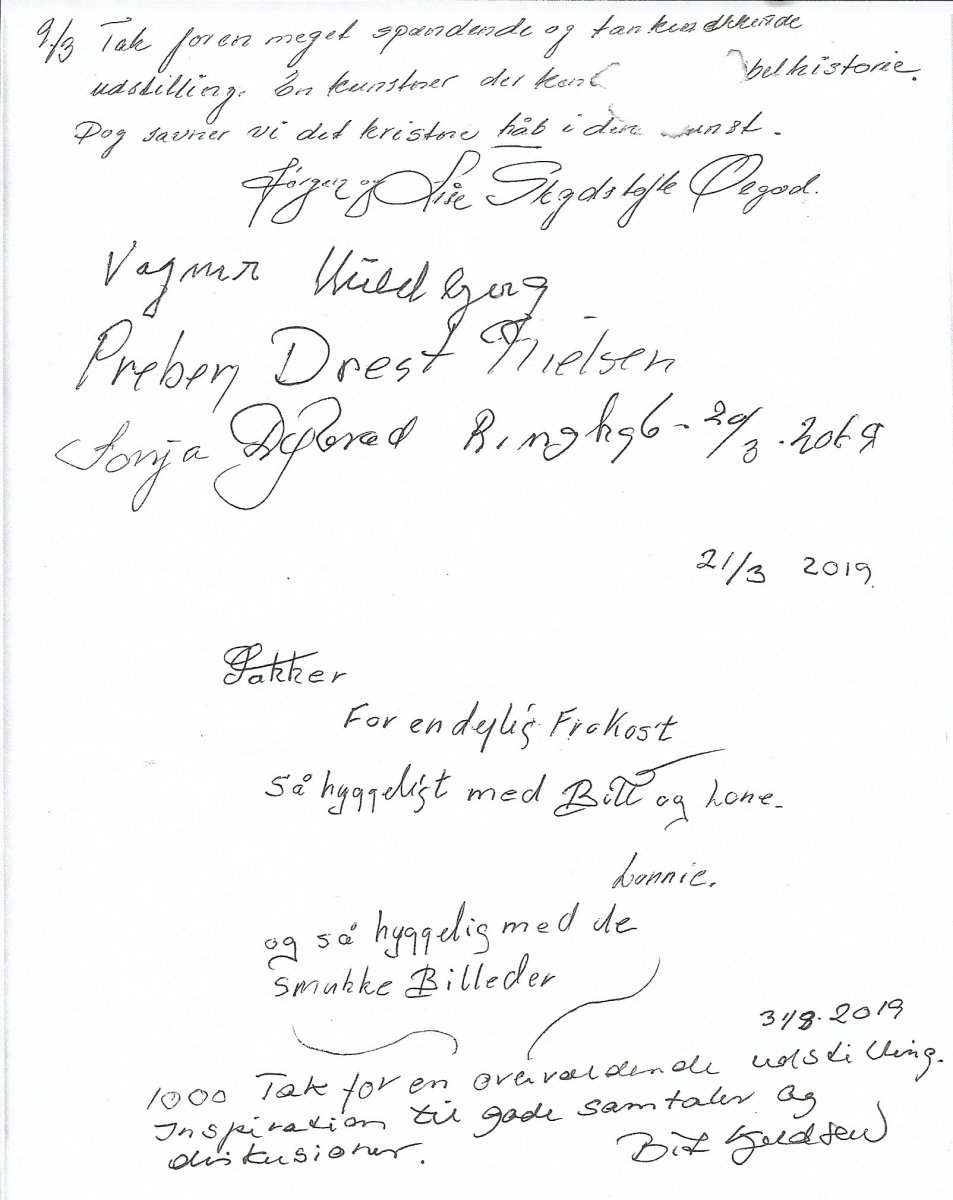 9/3 Tak for en meget spændende og tankevækkende
udstilling. En kunstner der ken belhistorie.
Dog savner vi det kristne håb i den unst.
Jørgen og Lise
Vagner
Preben Drest Nielsen
Sonja Ringkøb - 20/3 . 2019
21/3 2019
Takker
For en dejlig Frokost
Så hyggeligt med Bitt og Lone.
Lonnie.
og så hyggelig med de
Smukke Billeder
31/8.2019
1000 Tak for en overvældende udstilling.
Inspiration til gode samtaler og
diskusioner.